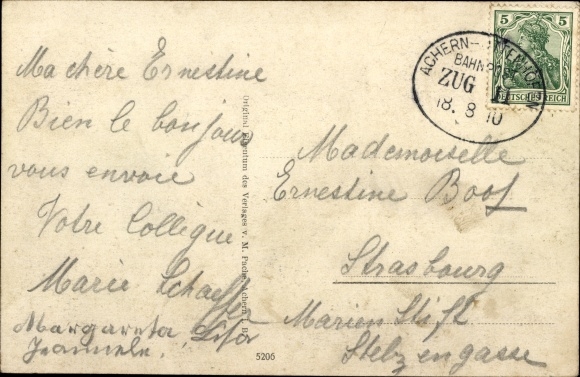 Ma chère Ernestine
Bien le bonjour
vous envoie
Votre Collègue
Marie Schaeffer
Margareta
Original Eigentum des Verlages v. M. Pache, Achern i. B.
5206
5 5
DEUTSCHES REICH
ACHERN–
BAHNPOST
ZUG
18. 8 10
Mademoiselle
Ernestine Boos
Strasbourg
Marien Stift
Stelzengasse